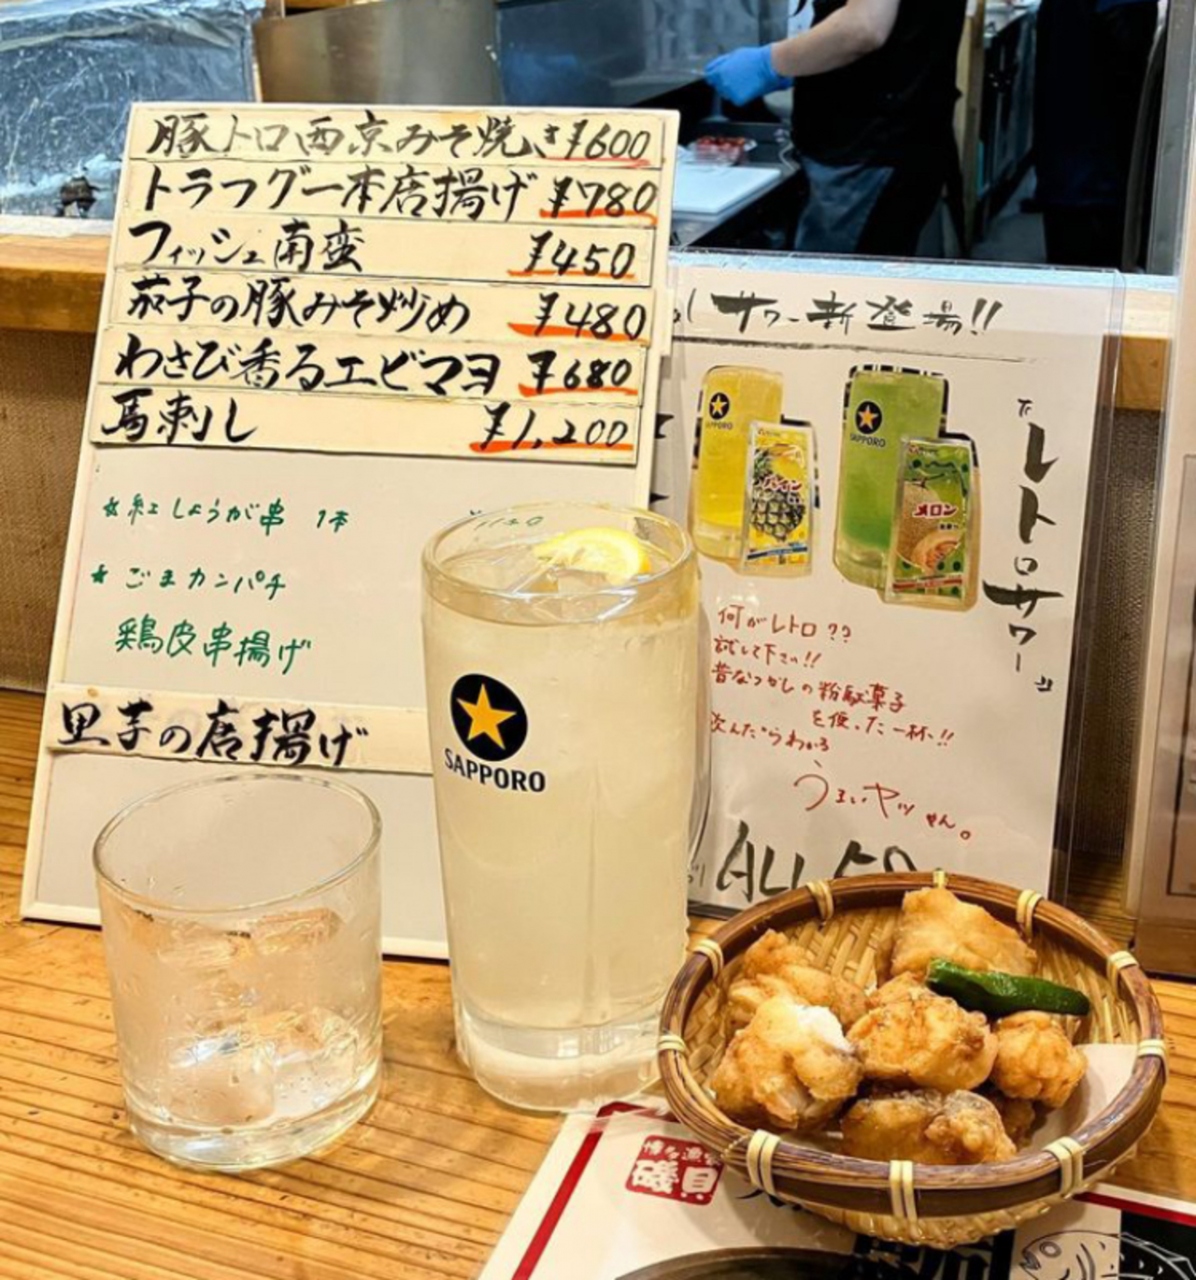 豚トロ西京みそ焼き ¥600
トラフグ一本唐揚げ ¥780
フィッシュ南蛮 ¥450
茄子の豚みそ炒め ¥480
わさび香るエビマヨ ¥680
馬刺し ¥1,200
★紅しょうが串 1本
★ごまカンパチ
鶏皮串揚げ
里芋の唐揚げ
SAPPORO
サワー新登場!!
SAPPORO
パイン
SAPPORO
メロン
『レトロサワー』
何がレトロ??
試して下さい!!
昔なつかしの粉駄菓子
を使った一杯!!
飲んだらわかる
うまいヤツやん。
ALL
磯貝